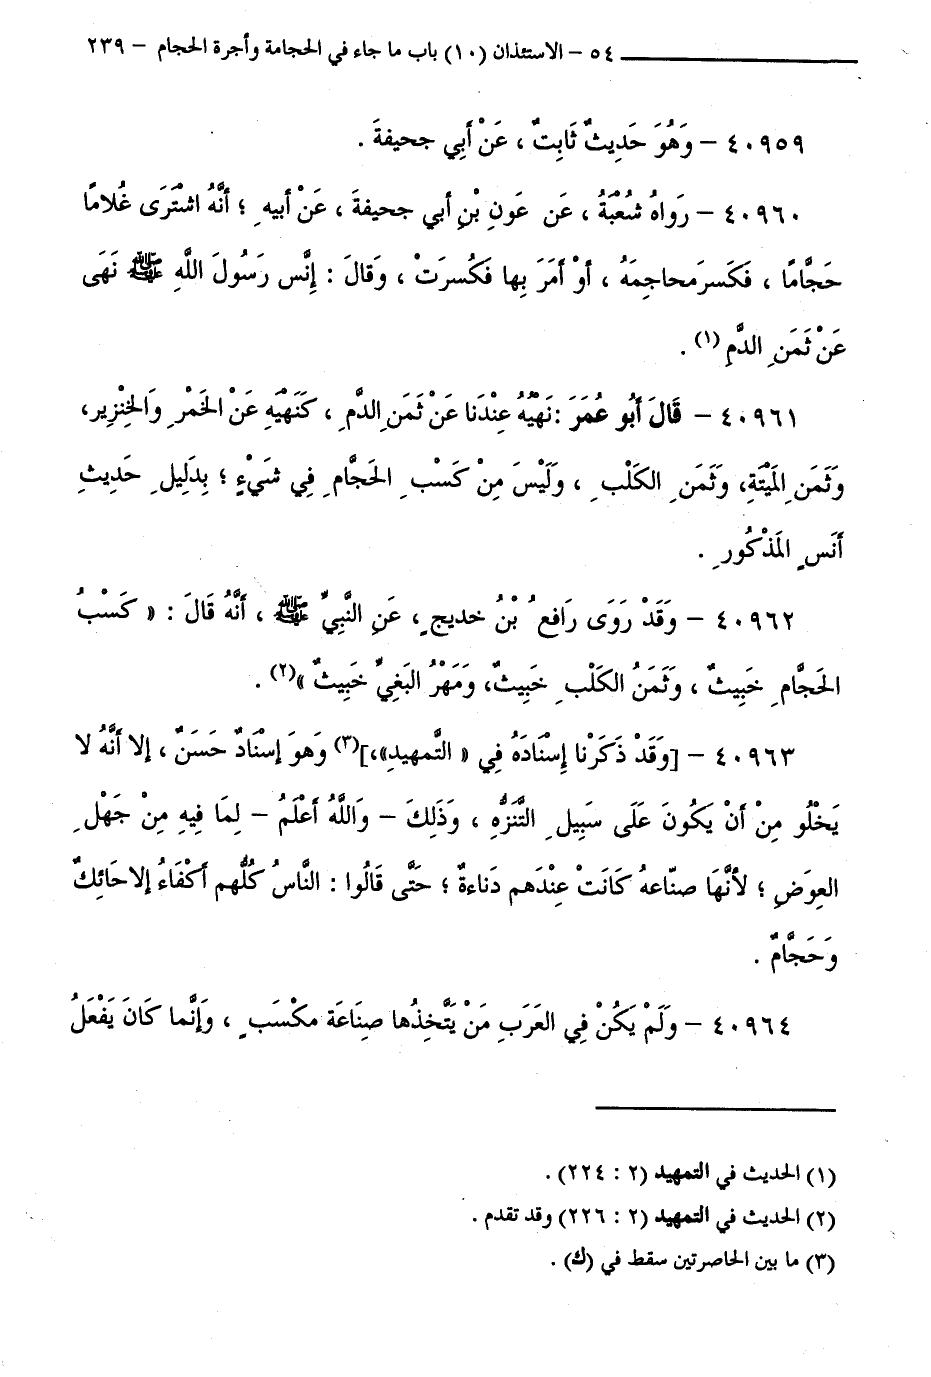 ٥٤ – الاستئذان (١٠) باب ما جاء في الحجامة وأجرة الحجام – ٢٣٩
٤٠٩٥٩ – وَهُوَ حَدِيثٌ ثَابِتٌ ، عَنْ أَبِي جحيفةَ .
٤٠٩٦٠ – رَوَاهُ شُعْبَةُ ، عَن عَونِ بْنِ أبي جحيفةَ ، عَنْ أبيهِ ؛ أَنَّهُ اشْتَرَى غُلامًا
حَجَّامًا ، فَكَسرَ محاجِمَهُ ، أوْ أَمَرَ بِها فَكُسرَتْ ، وَقالَ : إنَّ رَسُولَ اللَّهِ ﷺ نَهَى
عَنْ ثَمَنِ الدَّمِ (١) .
٤٠٩٦١ – قَالَ أَبُو عُمَرَ : نَهْيُهُ عِنْدَنا عَنْ ثَمَنِ الدَّمِ ، كَنَهْيِهِ عَنْ الخَمْرِ وَالخِنْزِيرِ،
وَثَمَنِ المَيْتَةِ، وَثَمَنِ الكَلْبِ ، وَلَيْسَ مِنْ كَسْبِ الحَجَّامِ فِي شَيْءٍ ؛ بِدَلِيلِ حَدِيثِ
أَنَسٍ المَذْكُورِ .
٤٠٩٦٢ – وَقَدْ رَوَى رَافعُ بْنُ خديجٍ ، عَنِ النَّبِيِّ ﷺ ، أَنَّهُ قَالَ : « كَسْبُ
الحَجَّامِ خَبِيثٌ ، وَثَمَنُ الكَلْبِ خَبِيثٌ، وَمَهْرُ البَغِيِّ خَبِيثٌ »(٢) .
٤٠٩٦٣ – [وَقَدْ ذَكَرْنا إِسْنَادَهُ فِي « التَّمهيدِ»،](٣) وَهوَ إِسْنَادٌ حَسَنٌ ، إلا أَنَّهُ لا
يَخْلُو مِنْ أَنْ يَكُونَ عَلَى سَبِيلِ التَّنَزُّهِ ، وَذَلِكَ – وَاللَّهُ أَعْلَمُ – لِمَا فِيهِ مِنْ جَهْلِ
العِوَضِ ؛ لأَنَّهَا صنّاعهُ كَانَتْ عِنْدَهم دَناءةٌ ؛ حَتَّى قَالُوا : النَّاسُ كُلُّهم أَكْفَاءُ إلا حَائِكٌ
وَحَجَّامٌ .
٤٠٩٦٤ – وَلَمْ يَكُنْ فِي العَرَبِ مَنْ يَتَّخِذُها صِنَاعَة مكْسَبٍ ، وَإِنَّما كَانَ يَفْعَلُ
(١) الحديث في التمهيد (٢ : ٢٢٤) .
(٢) الحديث في التمهيد (٢ : ٢٢٦) وقد تقدم .
(٣) ما بين الحاصرتين سقط في (ك) .